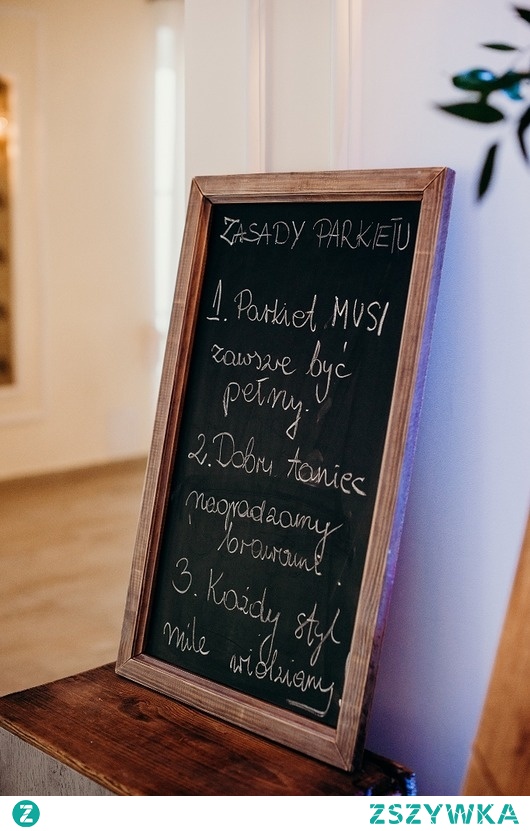 ZASADY PARKIETU
1. Parkiet MUSI
zawsze być
pełny.
2. Dobry taniec
nagradzamy
brawami.
3. Każdy styl
mile widziany.
Z
ZSZYWKA